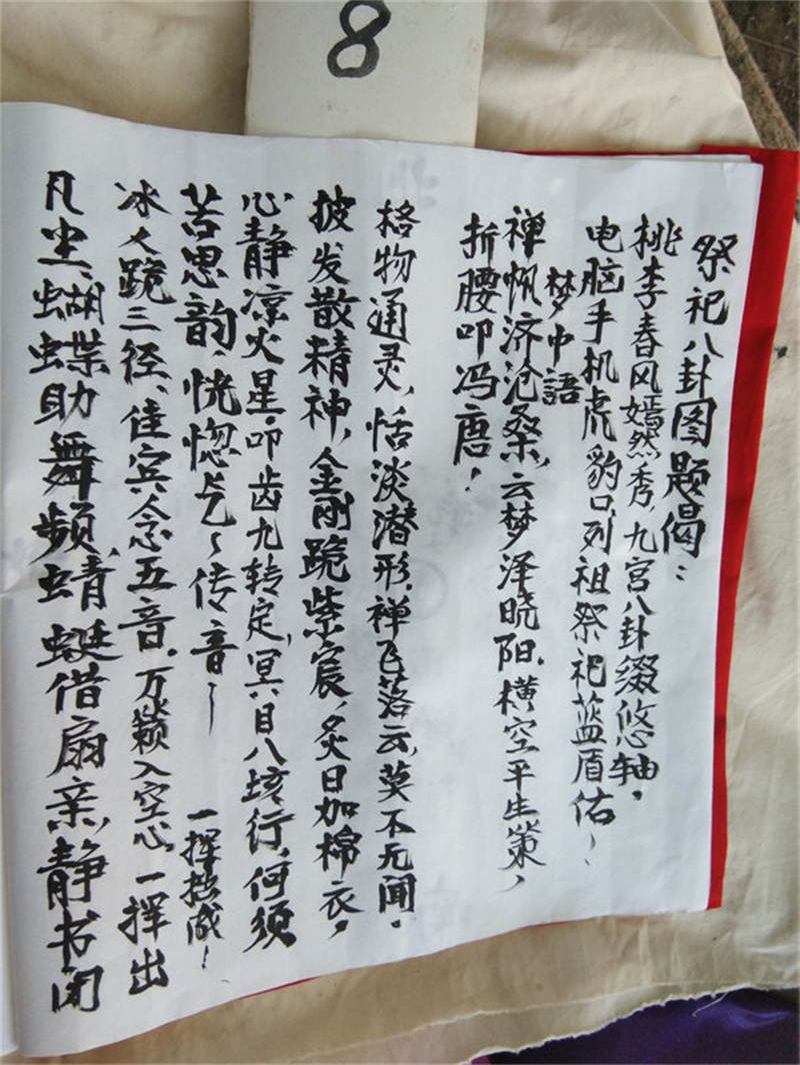 8
祭祀八卦图题偈：
桃李春风嫣然秀，九宫八卦缀悠轴，
电脑手机虎豹口，列祖祭祀蓝盾佑～
梦中語
禅帆济沧桑，云梦泽晓阳，横空平生策，
折腰叩冯唐！
格物通灵，恬淡潜形，禅飞落云，莫不无闻．
披发散精神，金刚跪紫宸，炙日加棉衣，
心静凉火星，叩齿九转定，冥目八垓行，何须
苦思韵，恍惚气～传音～
一挥 成！
冰人跪三径、佳宾念五音，万籁入空心，一挥出
凡尘、蝴蝶助舞频，蜻蜓借扇亲，静书闭